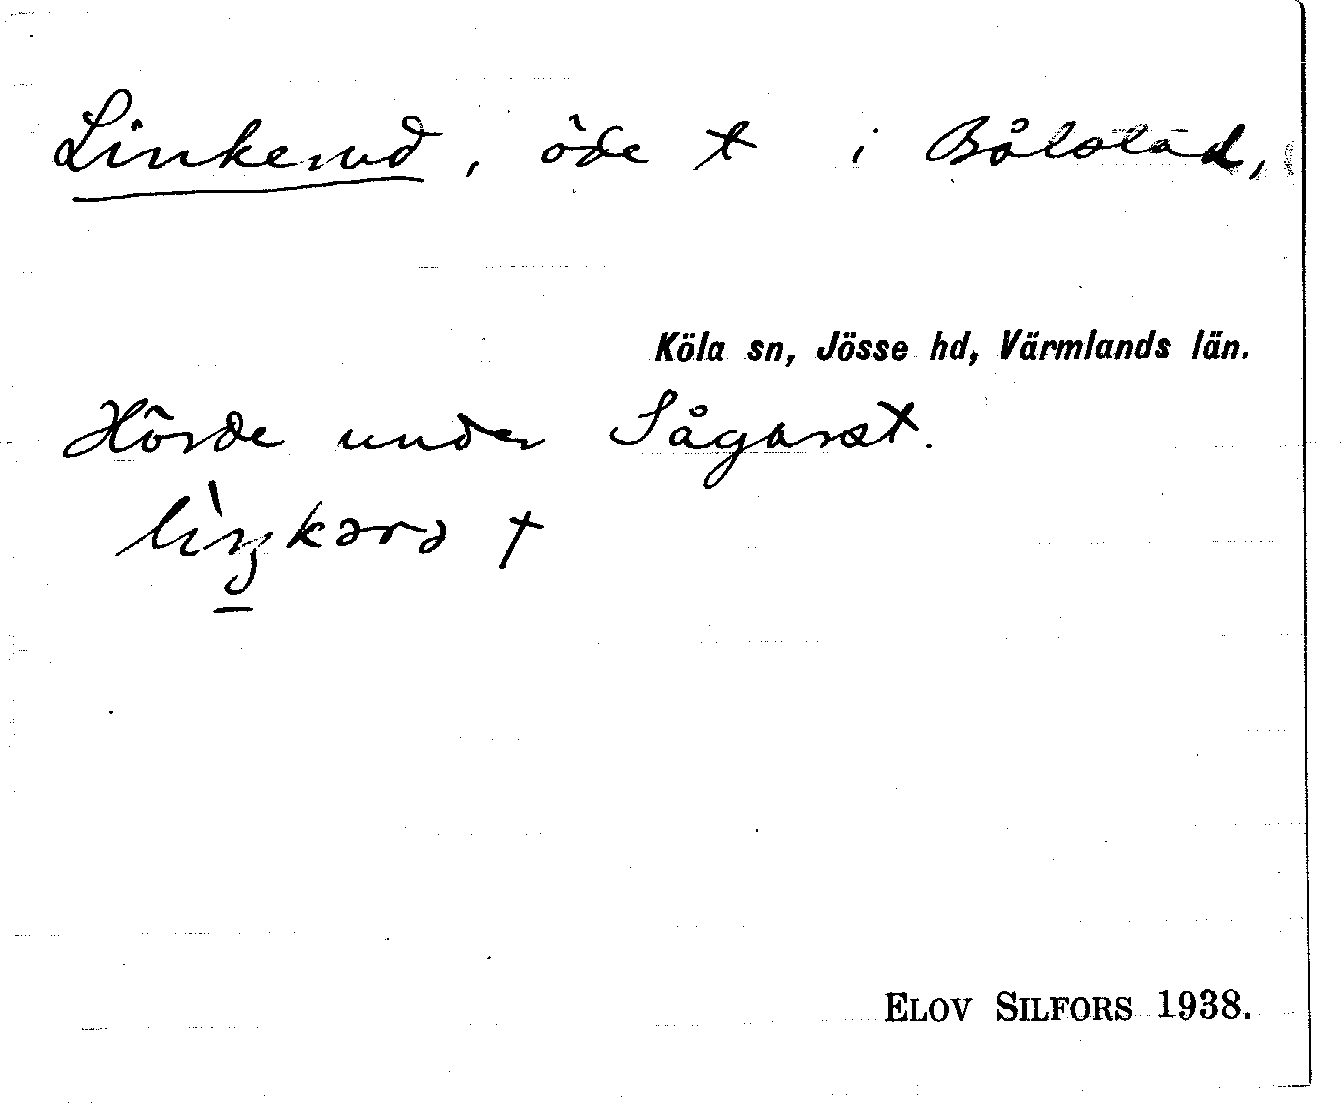 Linkerud, öde t i Bålstad,
Köla sn, Jösse hd, Värmlands län.
Hörde under Sågarst.
lìŋkərə t
ELOV SILFORS 1938.